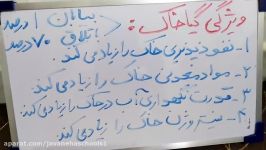 ویژگی گیاخاک:
بیابان ۱ درصد
باتلاق ۷۰ درصد
۱- نفوذپذیری خاک را زیاد می کند.
۲- مواد معدنی خاک را زیاد می کند.
۳- قدرت نگهداری آب در خاک را زیاد می کند.
۴- نیتروژن خاک را زیاد می کند.
aparat.com/javanehaschools1